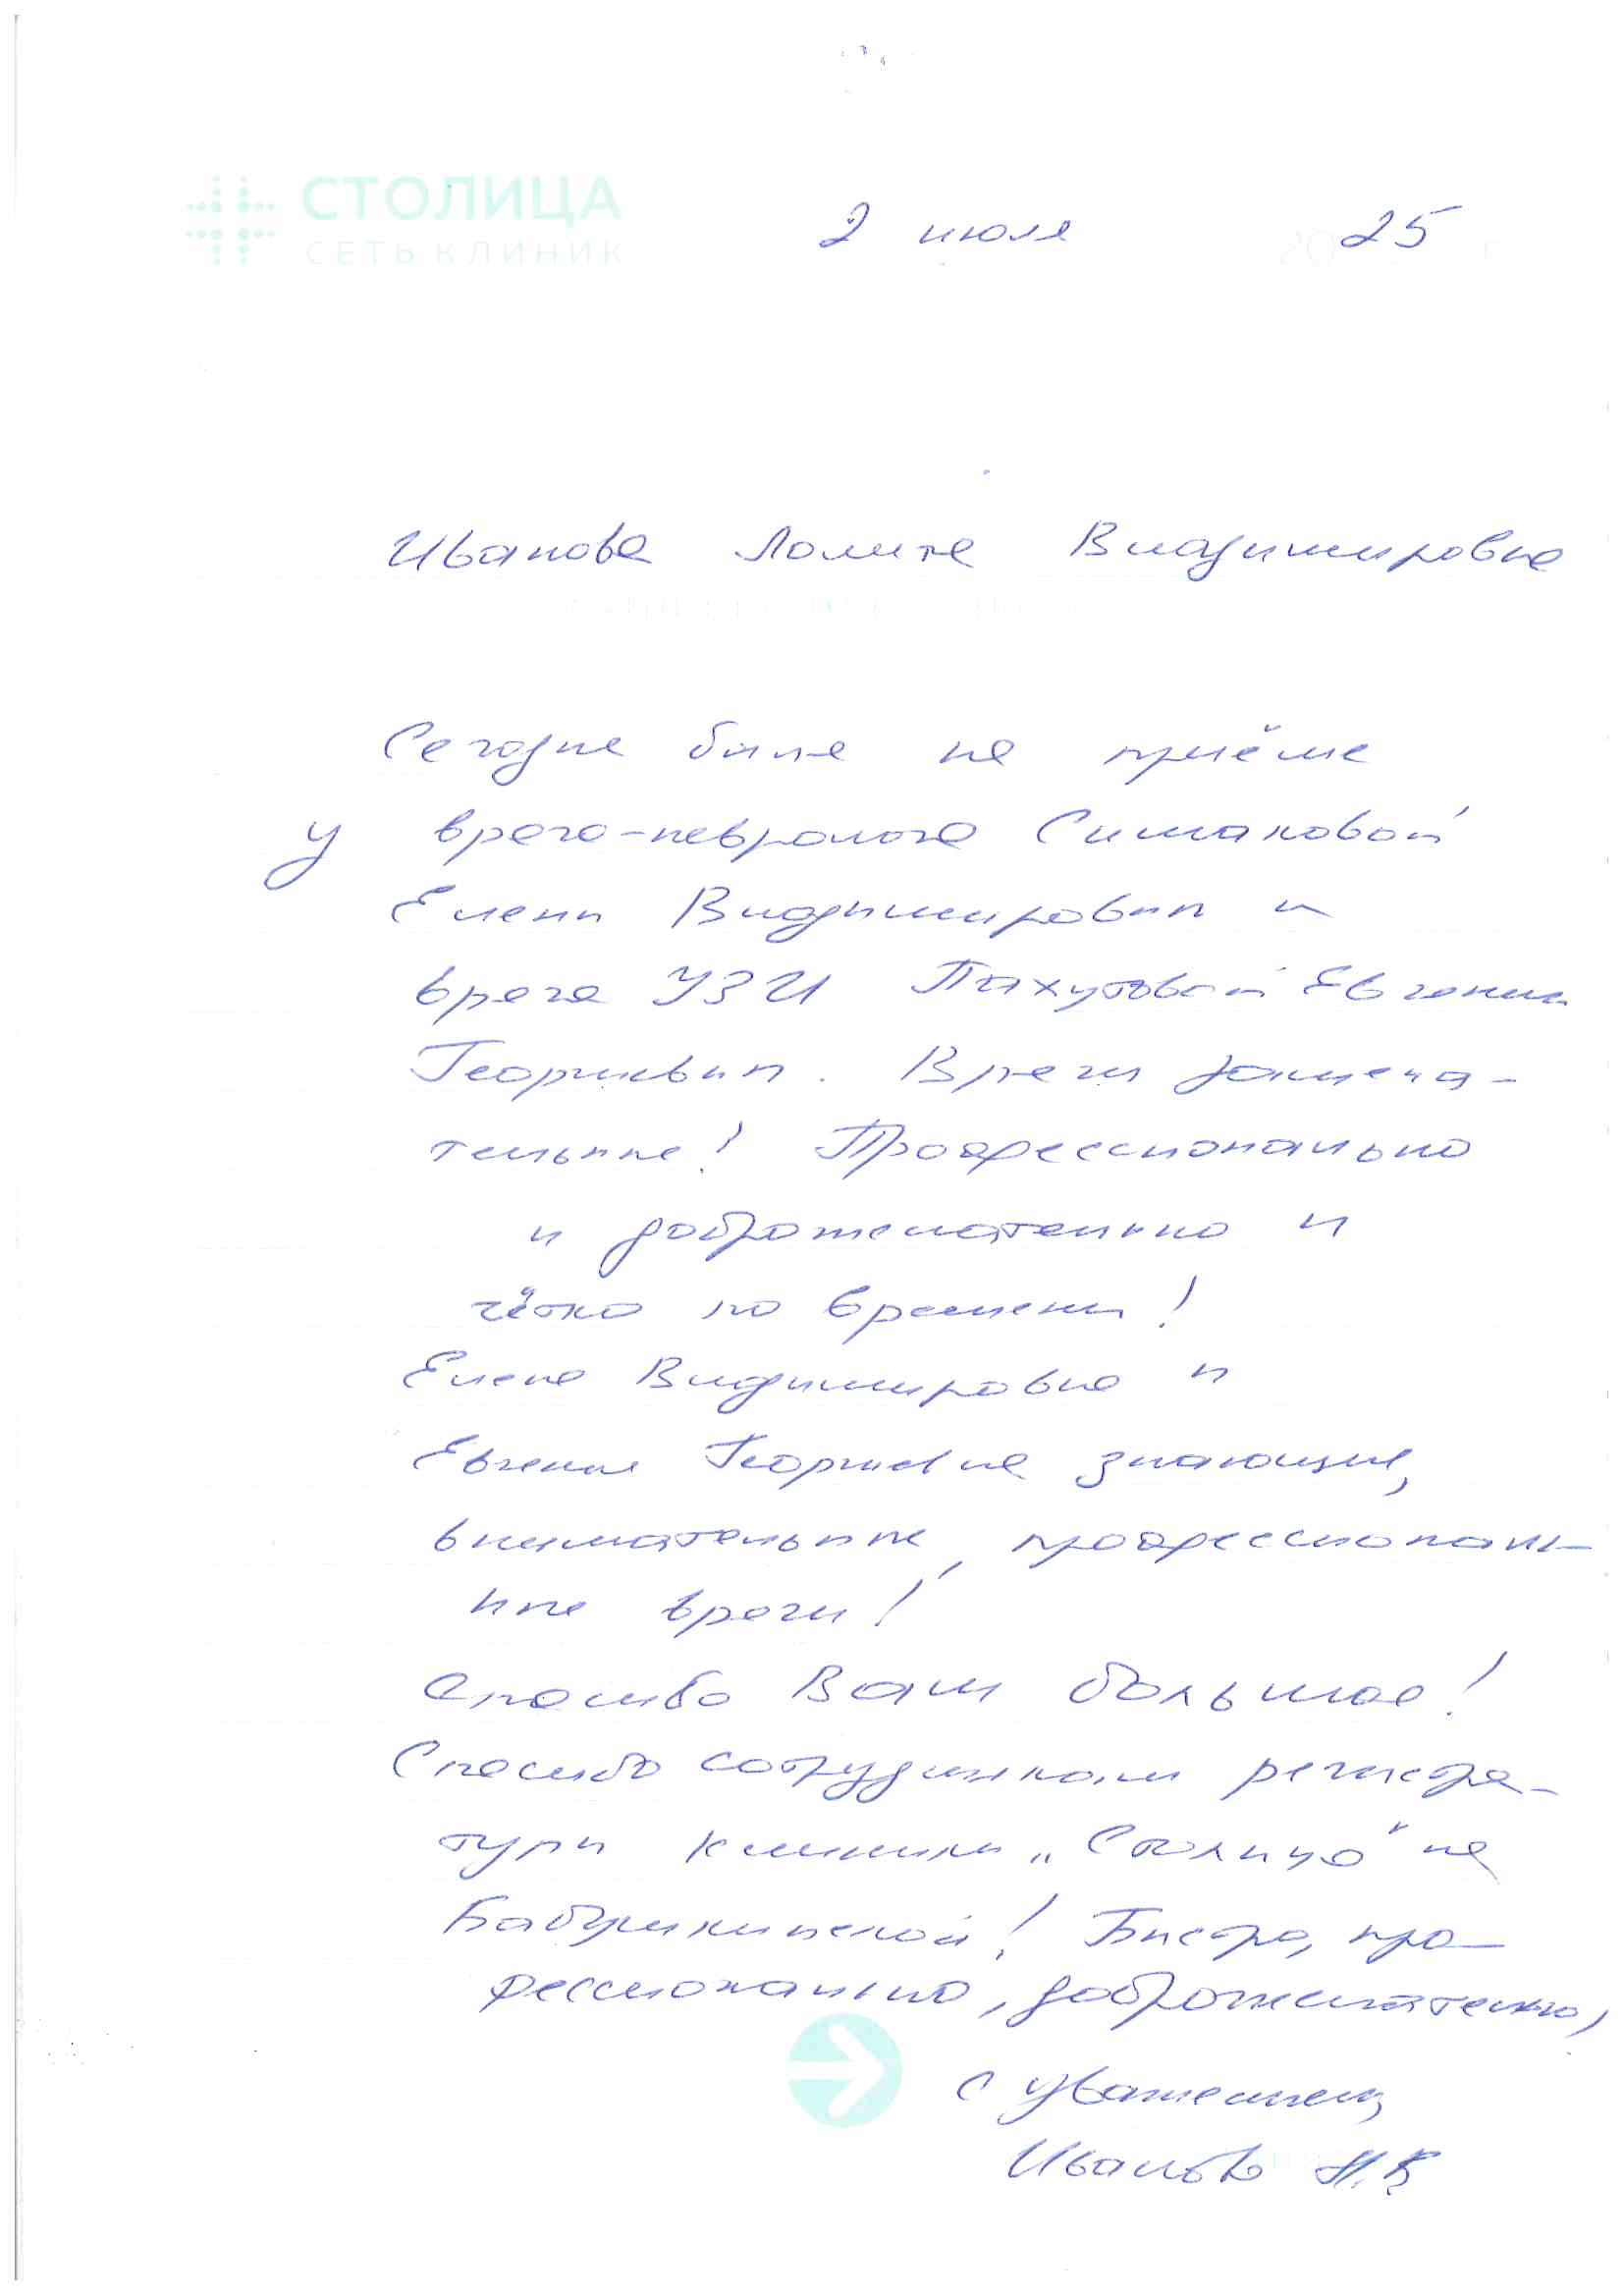 СТОЛИЦА
СЕТЬ КЛИНИК
2 июля 25
Иванова Лолита Владимировна
Сегодня была на приёме
у врача-невролога Симаковой
Елены Владимировны и
врача УЗИ Пахутовой Евгении
Георгиевны. Врачи замеча-
тельные! Профессионально
и доброжелательно и
чётко по времени!
Елена Владимировна и
Евгения Георгиевна знающие,
внимательные, профессиональ-
ные врачи!
Спасибо Вам большое!
Спасибо сотрудникам регистра-
туры клиники „Столица" на
Бабушкинской! Быстро, про-
фессионально, доброжелательно,
с уважением,
Иванова